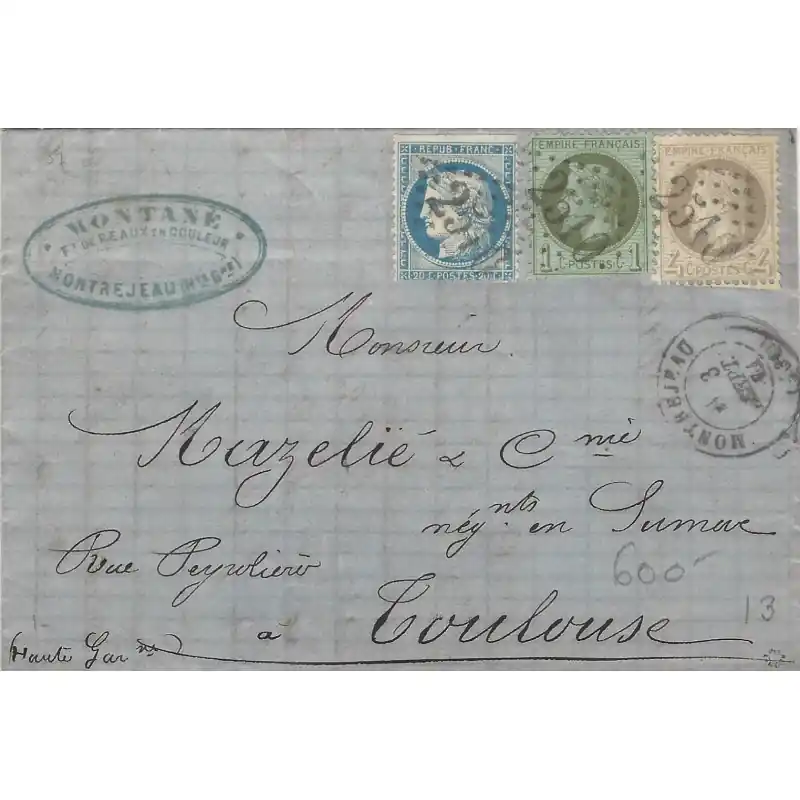 MONTANÉ
Ft DE PEAUX EN COULEUR
MONTREJEAU (Hte Gne)
REPUB. FRANC.
20 C. POSTES 20 C.
EMPIRE FRANÇAIS
1 C. POSTES C. 1
2510
EMPIRE FRANÇAIS
4 C. POSTES C. 4
2510
MONTREJEAU
3
SEPT.
71
Monsieur
Mazelié & Cnie
négnts en Sumac
Rue Peyrolières
600-
13
à Toulouse
(Haute Garne)